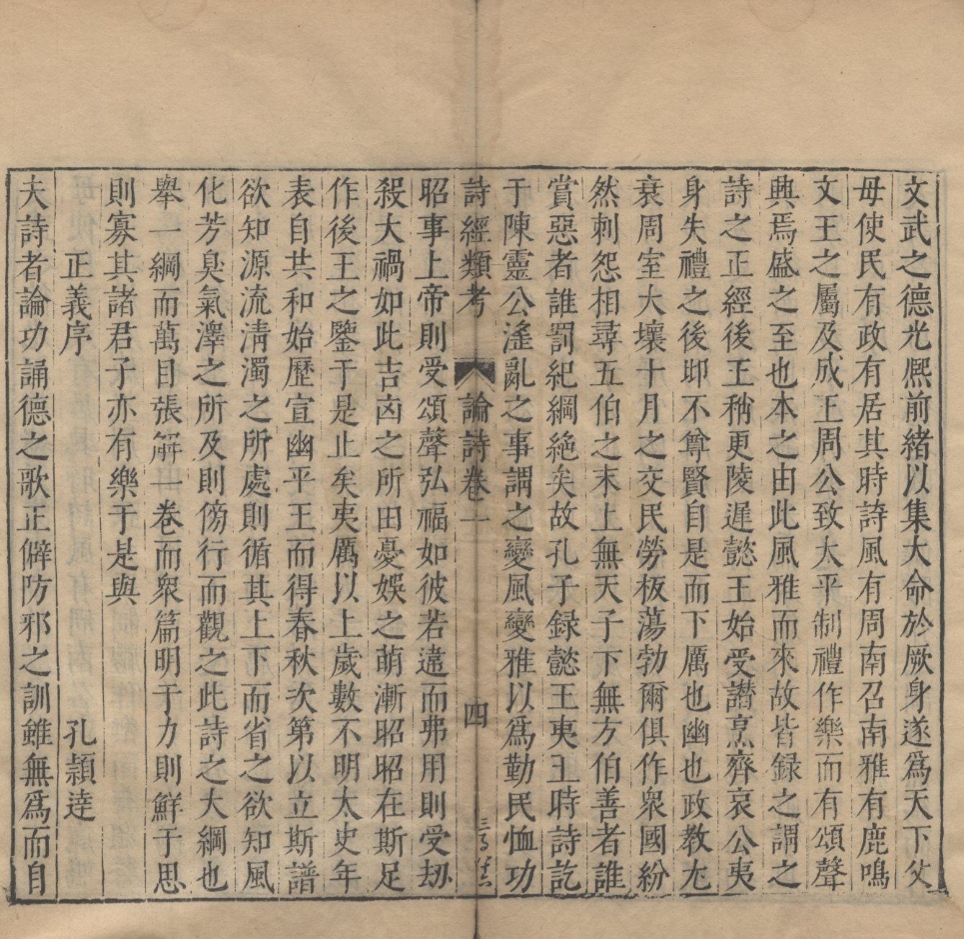 文武之德光熙前緒以集大命於厥身遂爲天下父
母使民有政有居其時詩風有周南召南雅有鹿鳴
文王之屬及成王周公致太平制禮作樂而有頌聲
興焉盛之至也本之由此風雅而來故皆録之謂之
詩之正經後王稍更陵遲懿王始受譖烹齊哀公夷
身失禮之後邶不尊賢自是而下厲也幽也政教尤
衰周室大壞十月之交民勞板蕩勃爾俱作衆國紛
然刺怨相尋五伯之末上無天子下無方伯善者誰
賞惡者誰罰紀綱絶矣故孔子録懿王夷王時詩訖
于陳靈公滛亂之事謂之變風變雅以爲勤民恤功
詩經類考 論詩卷一 四
昭事上帝則受頌聲弘福如彼若違而弗用則受刼
殺大禍如此吉凶之所由憂娛之萌漸昭昭在斯足
作後王之鑒于是止矣夷厲以上歲數不明太史年
表自共和始歷宣幽平王而得春秋次第以立斯譜
欲知源流清濁之所處則循其上下而省之欲知風
化芳臭氣澤之所及則傍行而觀之此詩之大綱也
舉一綱而萬目張解一卷而衆篇明于力則鮮于思
則寡其諸君子亦有樂于是與
正義序 孔頴逹
夫詩者論功誦德之歌正僻防邪之訓雖無爲而自